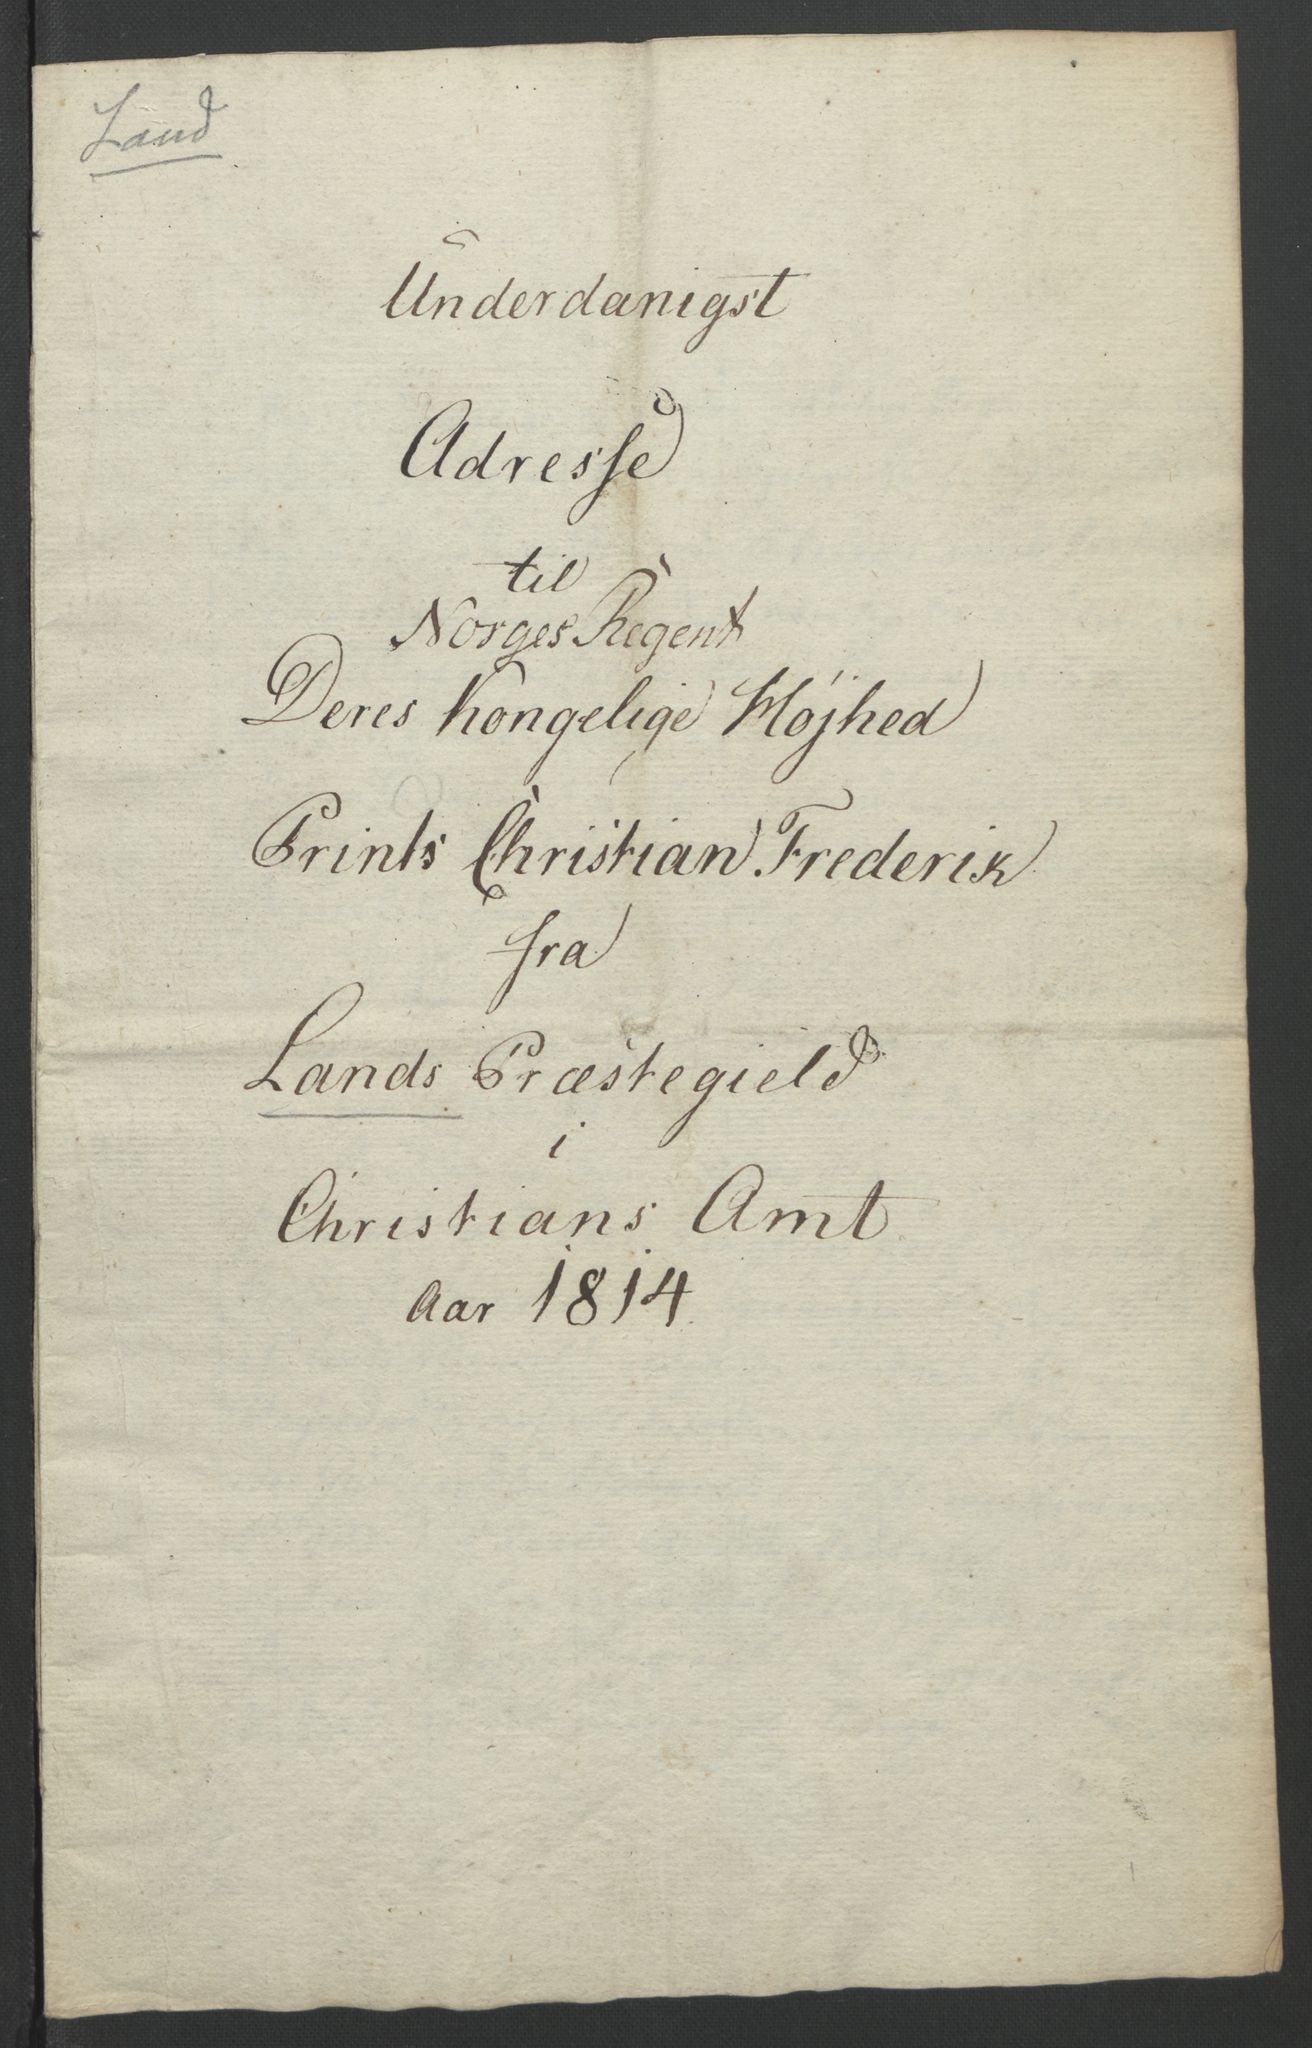 Land
Underdanigst
Adresse
til
Norges Regent
Deres Kongelige Højhed
Prints Christian Frederik
fra
Lands Præstegield
i
Christians Amt
Aar 1814.